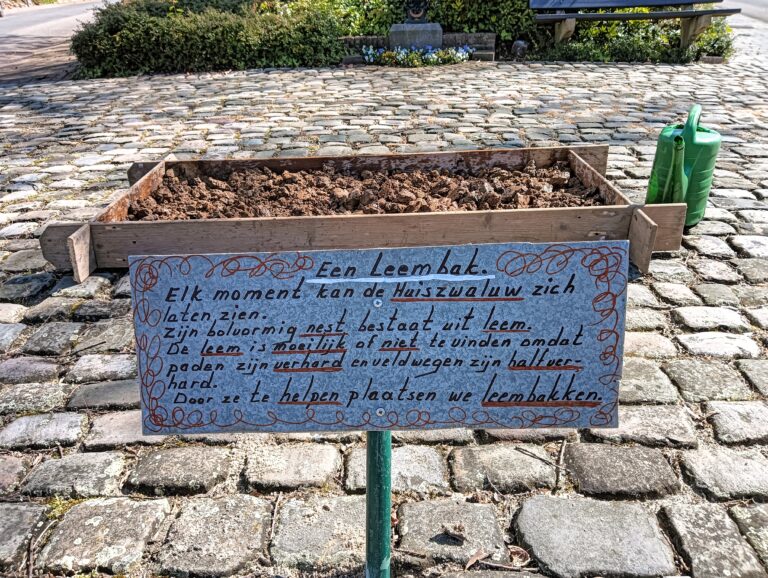 Een Leembak.
Elk moment kan de Huiszwaluw zich
laten zien.
Zijn bolvormig nest bestaat uit leem.
De leem is moeilijk of niet te vinden omdat
paden zijn verhard en veldwegen zijn halfver-
hard.
Door ze te helpen plaatsen we leembakken.